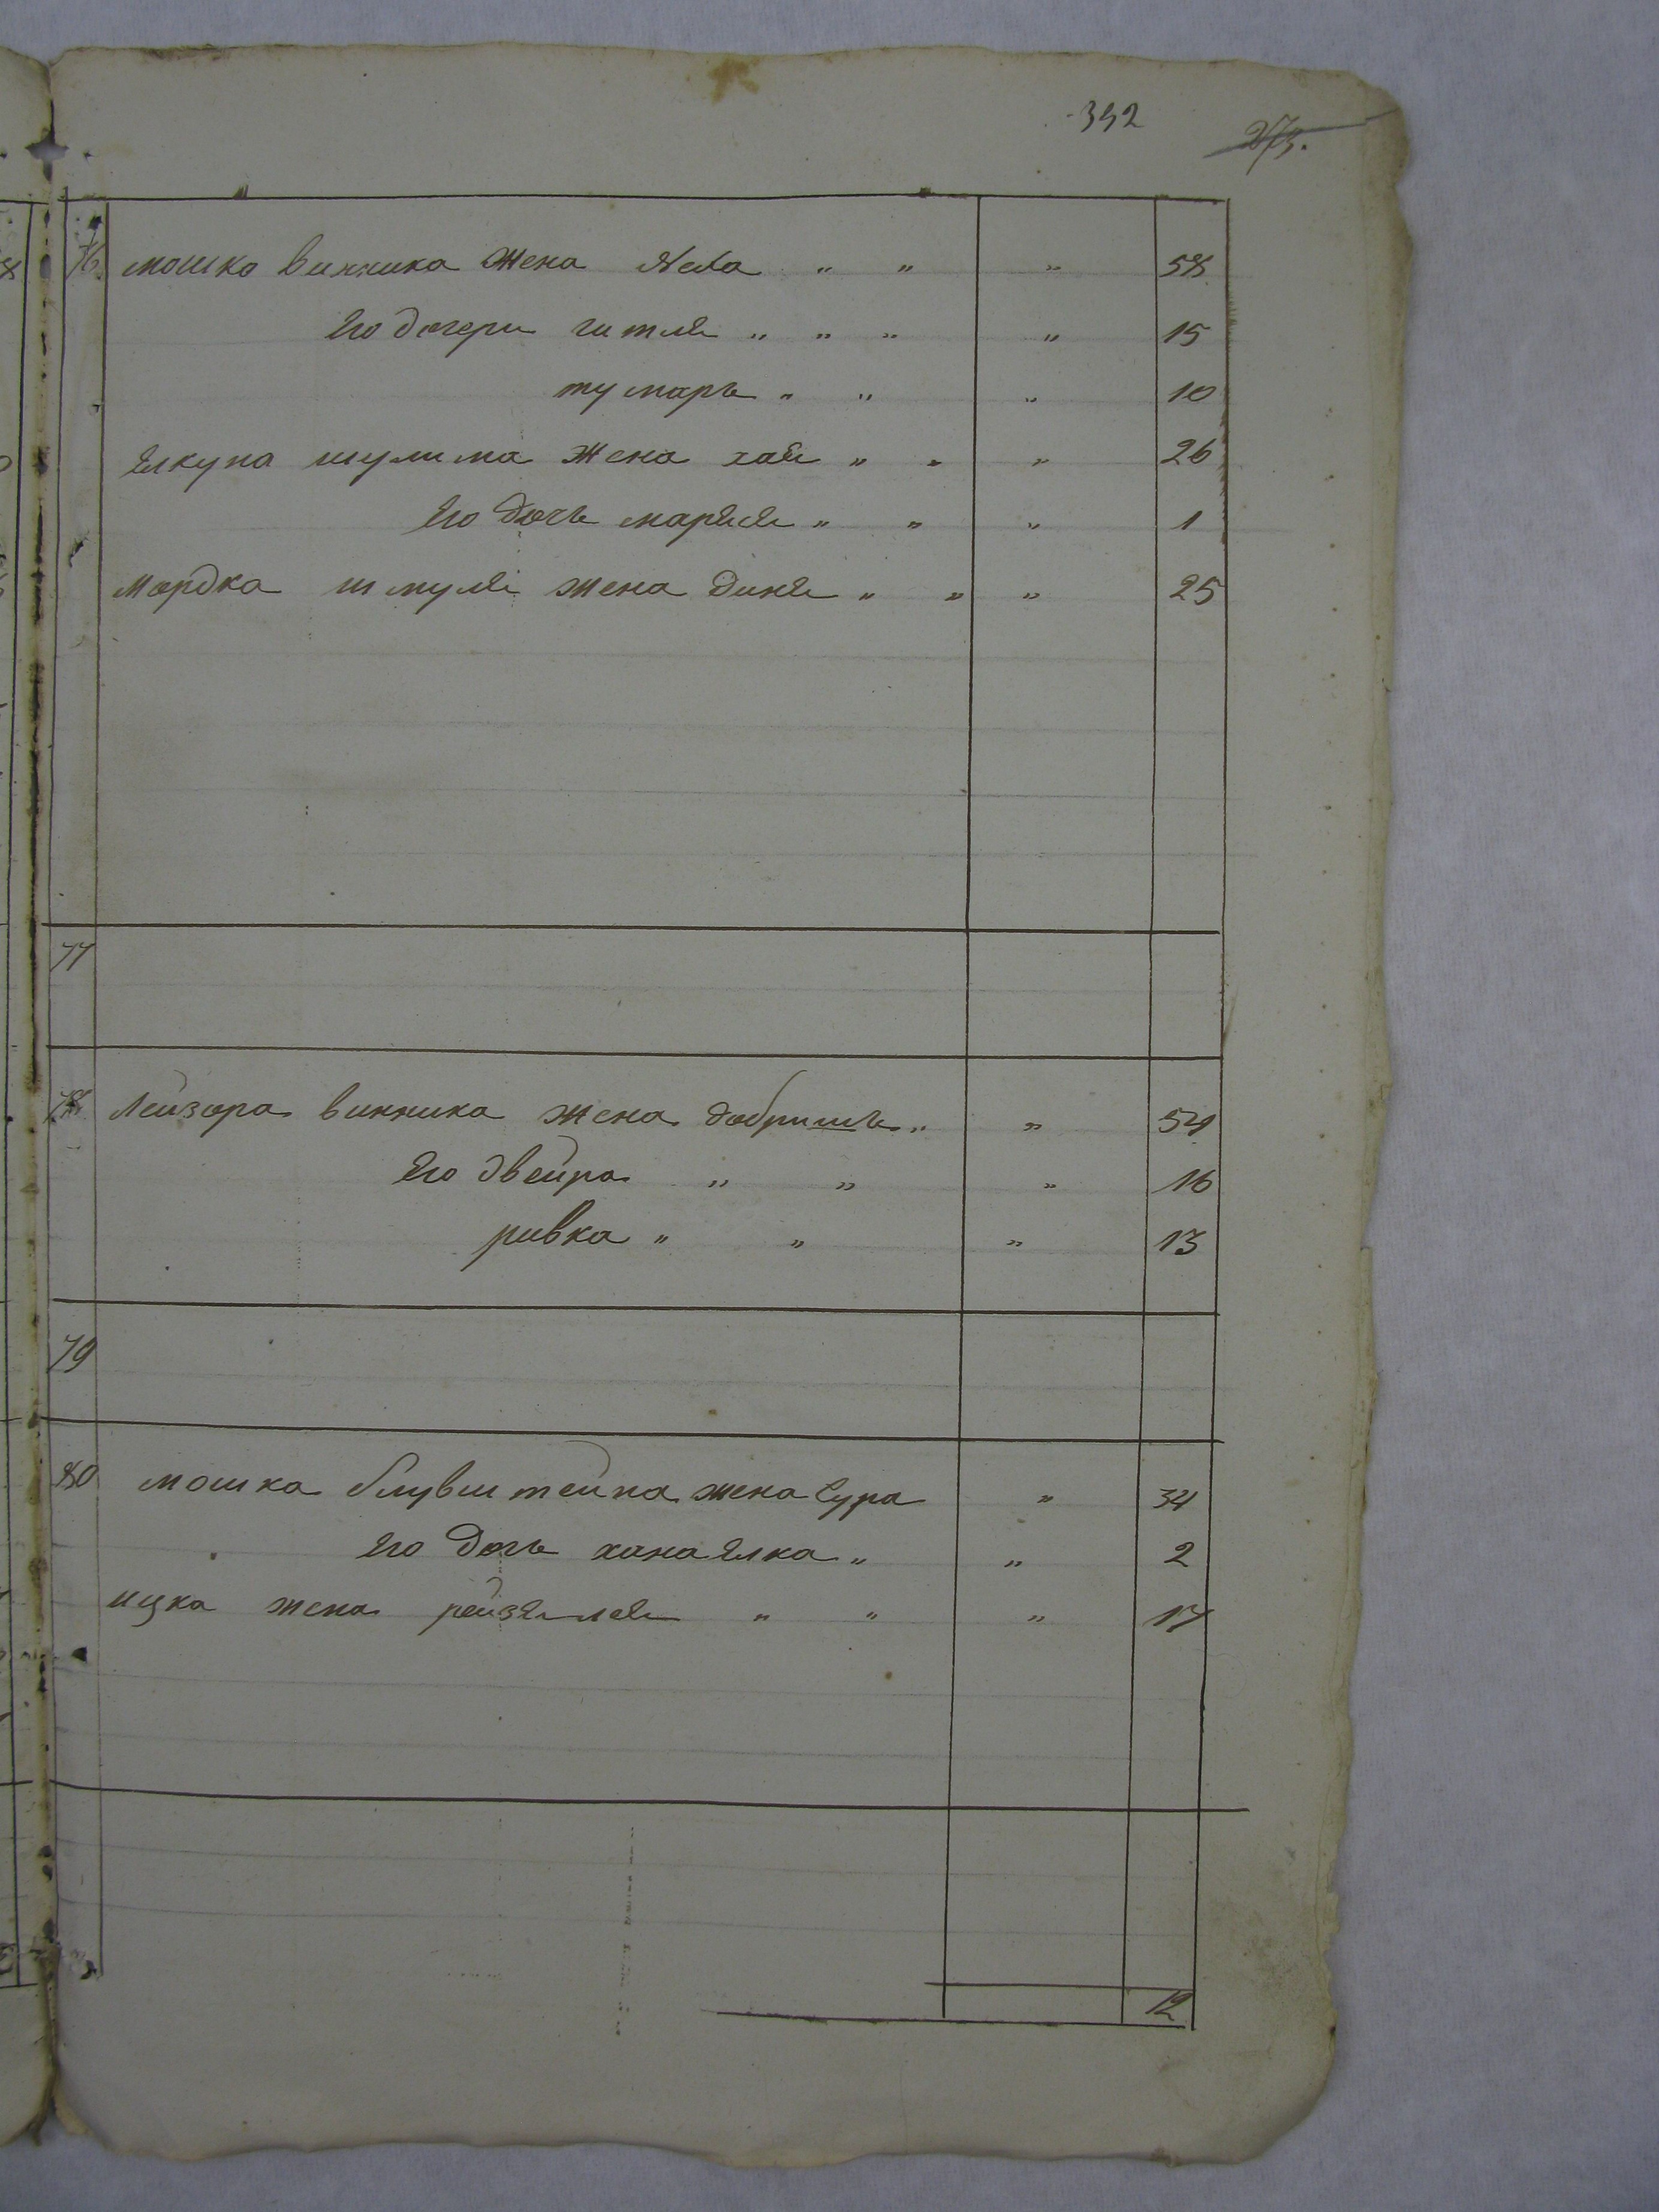 392
273.
76. мошко винника жена Лея " " " 58.
Его дочери гитля " " " " 15
тумаръ " " " 10
Елкупа шулима жена хая " " " 26
Его дочь маряся " " " 1
Мордка шмуля жена диня " " " 25
77
78 Лейзора винника жена добришъ " " 54
Его двейра " " " 16
ривка " " " 13
79
80 мошка блувштейна жена Сура " 34
Его дочь хана Елка " " 2
ицка жена рейзя лея " " " 17
12